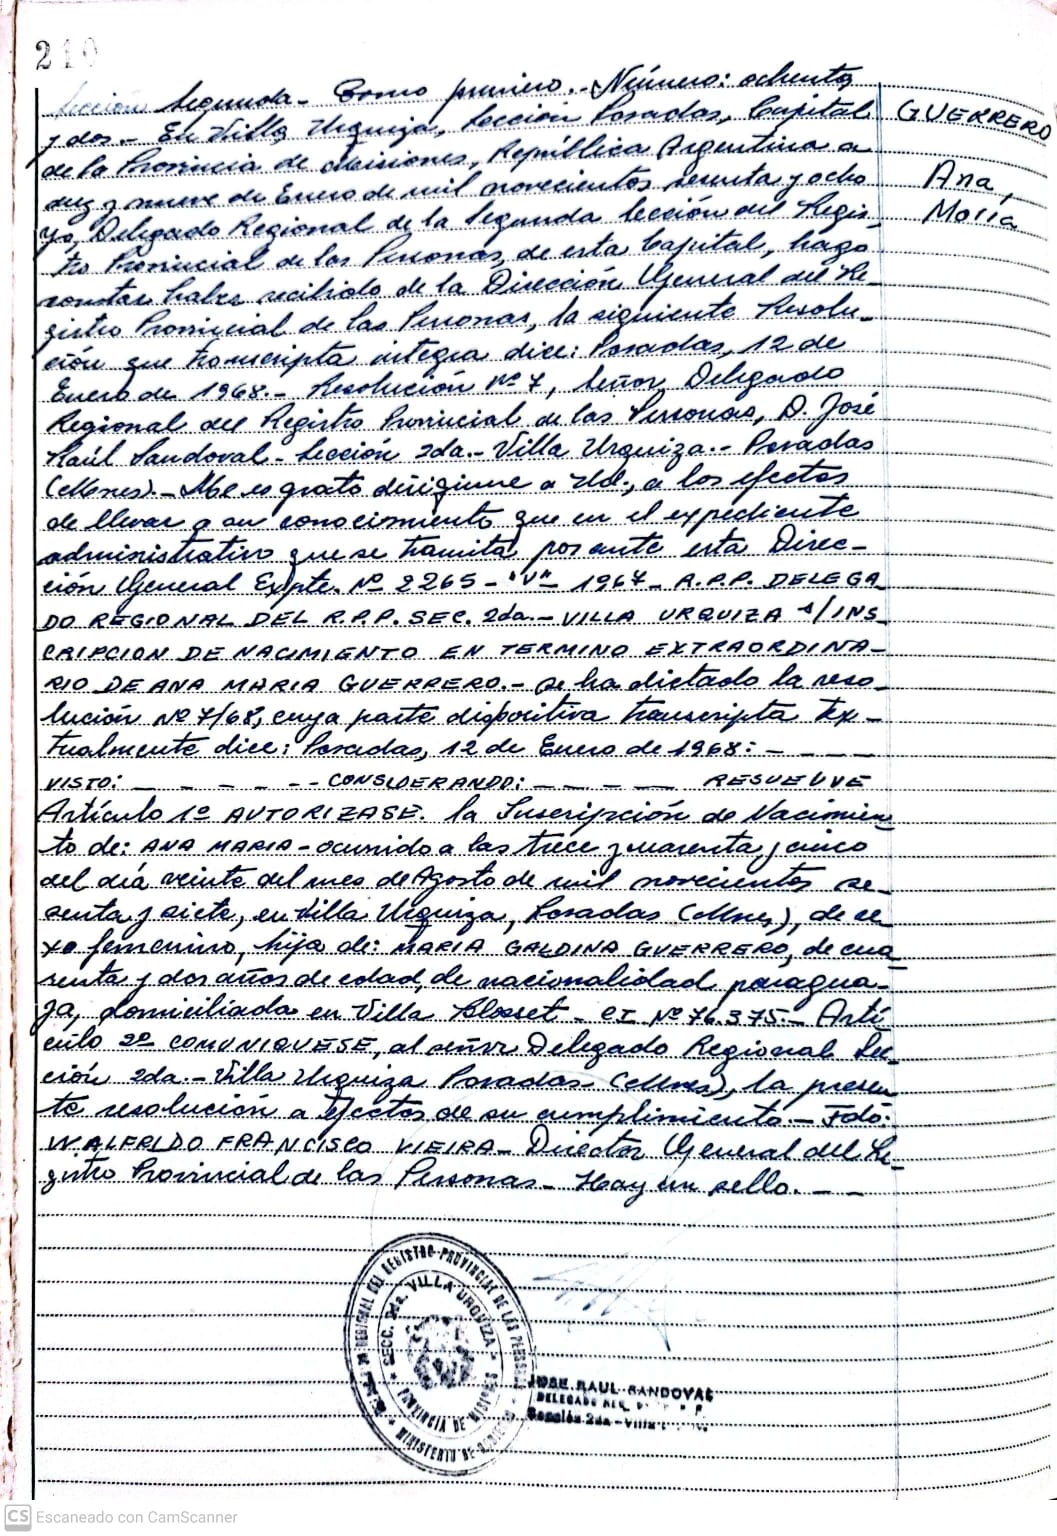 210
Sección Segunda.- Tomo primero.- Número: ochenta
y dos.- En Villa Urquiza, Sección Posadas, Capital
de la Provincia de Misiones, República Argentina a
diez y nueve de Enero de mil novecientos sesenta y ocho
Yo, Delegado Regional de la Segunda Sección del Regis-
tro Provincial de las Personas, de esta Capital, hago
constar haber recibido de la Dirección General del Re-
gistro Provincial de las Personas, la siguiente Resolu-
ción que transcripta integra dice: Posadas, 12 de
Enero de 1968.- Resolución Nº 7, Señor Delegado
Regional del Registro Provincial de las Personas, D. José
Raúl Sandoval - Sección 2da.- Villa Urquiza.- Posadas
(Mnes).- Me es grato dirigirme a Ud., a los efectos
de llevar a su conocimiento que en el expediente
administrativo que se tramita por ante esta Direc-
ción General Expte. Nº 2265 - "V" - 1967 - R.P.P. DELEGA
DO REGIONAL DEL R.P.P. SEC. 2da.- VILLA URQUIZA S/INS
CRIPCION DE NACIMIENTO EN TERMINO EXTRAORDINA-
RIO DE ANA MARIA GUERRERO.- se ha dictado la reso-
lución Nº 7/68, cuya parte dispositiva transcripta tex-
tualmente dice: Posadas, 12 de Enero de 1968: - - - -
VISTO: - - - - - - CONSIDERANDO: - - - - - RESUELVE
Artículo 1º AUTORIZASE. la Inscripción de Nacimien
to de: ANA MARIA - ocurrido a las trece y cuarenta y cinco
del día veinte del mes de Agosto de mil novecientos se-
senta y siete, en Villa Urquiza, Posadas (Mnes), de se-
xo femenino, hija de: MARIA GALDINA GUERRERO, de cua
renta y dos años de edad, de nacionalidad paragua-
ya, domiciliada en Villa Blosset - CI Nº 76.375.- Artí
culo 2º COMUNIQUESE, al señor Delegado Regional Sec-
ción 2da.- Villa Urquiza Posadas - (Mnes), la presen
te resolución a efectos de su cumplimiento.- Fdo:
WALFRIDO FRANCISCO VIEIRA - Director General del Re-
gistro Provincial de las Personas - Hay un sello. - -
GUERRERO
Ana
Maria
REGIONAL DEL REGISTRO PROVINCIAL DE LAS
SECC. 2da. VILLA URQUIZA
PROVINCIA DE MISIONES
MINISTERIO DE
JOSE RAUL SANDOVAL
DELEGADO
Sección 2da - Villa
CS Escaneado con CamScanner